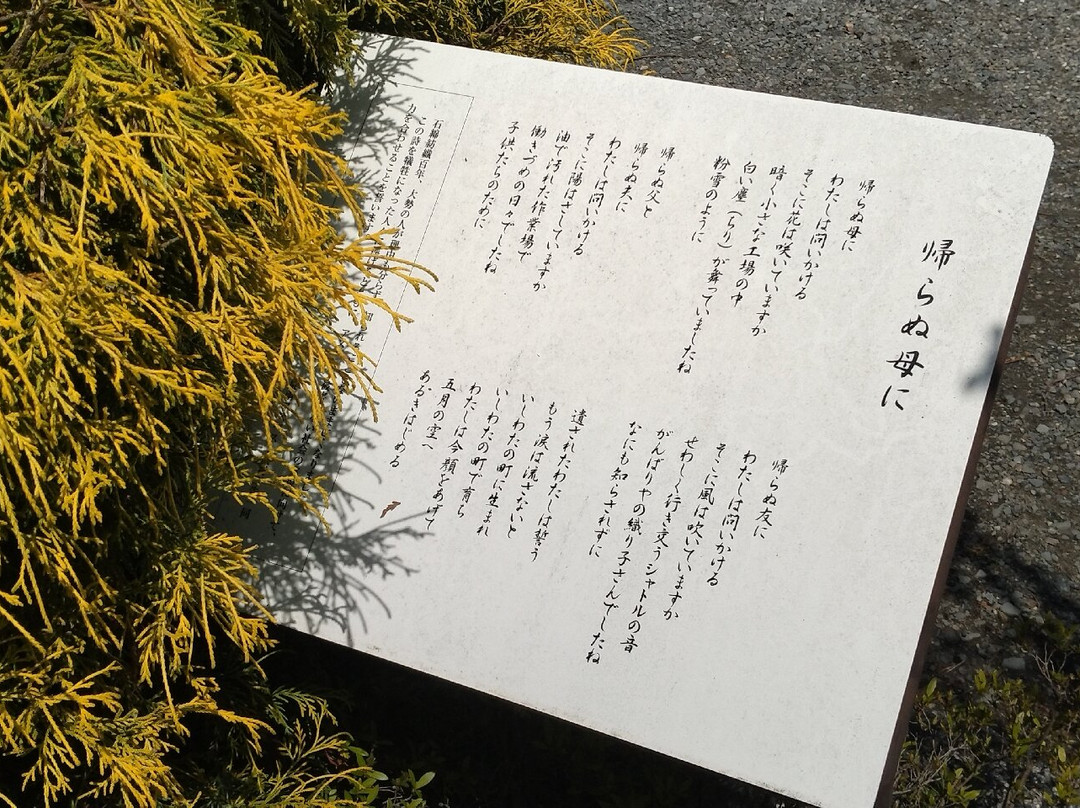 帰らぬ母に
帰らぬ母に
わたしは問いかける
そこに花は咲いていますか
暗く小さな工場の中
白い塵（ちり）が舞っていましたね
粉雪のように
帰らぬ父と
帰らぬ夫に
わたしは問いかける
そこに陽はさしていますか
油で汚れた作業場で
働きづめの日々でしたね
子供たちのために
帰らぬ友に
わたしは問いかける
そこに風は吹いていますか
せわしく行き交うシャトルの音
がんばりやの織り子さんでしたね
なにも知らされずに
遺されたわたしは誓う
もう涙は流さないと
いしわたの町に生まれ
いしわたの町で育ち
わたしは今顔をあげて
五月の空へ
あるきはじめる
石綿紡織百年、大勢の人が
この詩を犠牲になった人
力を合わせることを誓いま